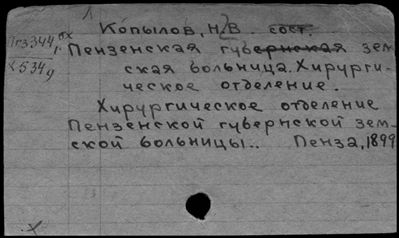 Копылов, Н.В. сост.
Пгз344
Пензенская губернская зем-
Х534д
ская больница. Хирурги-
ческое отделение.
Хирургическое отделение
Пензенской губернской зем-
ской больницы.. Пенза, 1899